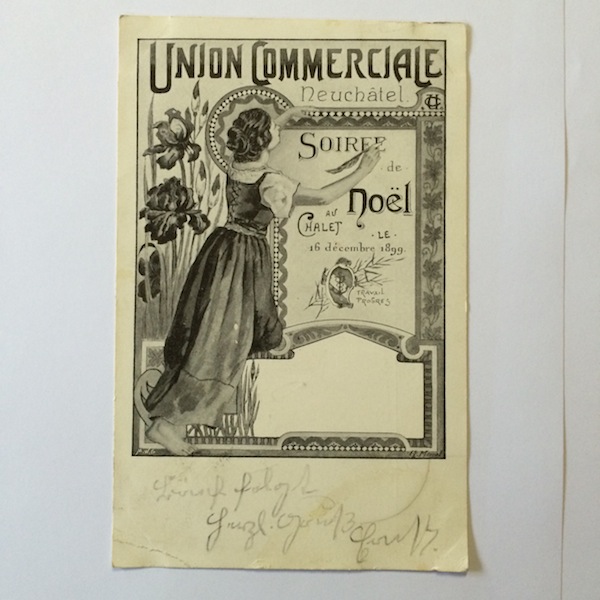 UNION COMMERCIALE
Neuchâtel.
SOIREE
de
Noël
AU
CHALET
· LE ·
16 décembre 1899.
TRAVAIL
PROGRES
folgt
herzl.